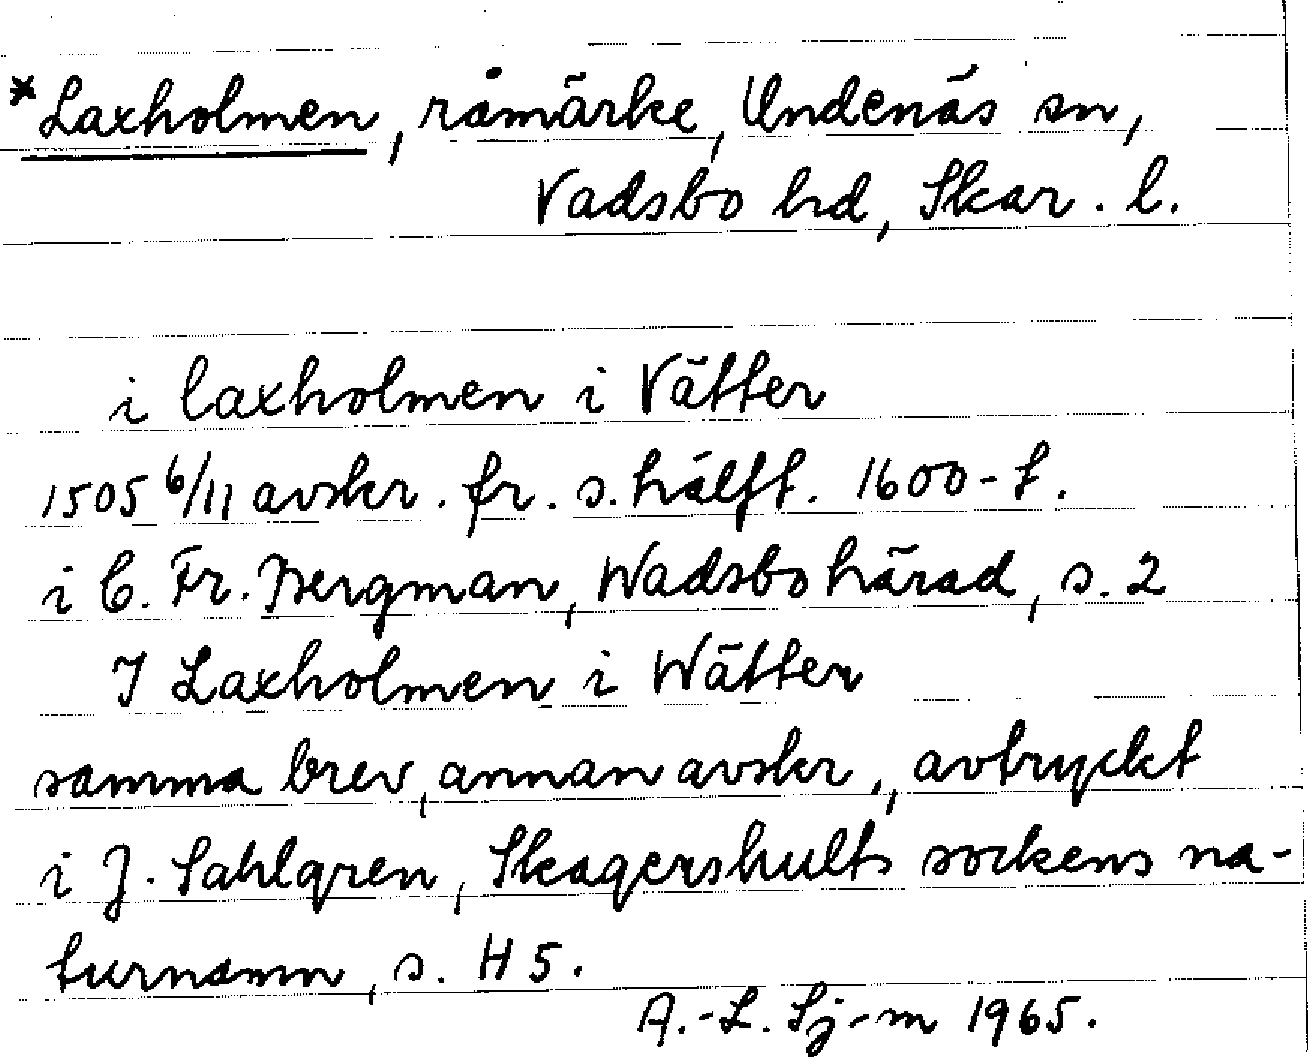 *Laxholmen, råmärke, Undenäs sn,
Vadsbo hd, Skar. l.
i laxholmen i Vätter
1505 6/11 avskr. fr. s. hälft. 1600-t.
i C. Fr. Bergman, Wadsbo härad, s. 2
I Laxholmen i Wätter
samma brev, annan avskr., avtryckt
i J. Sahlgren, Skagershults sockens na-
turnamn, s. H 5.
A.-L. Sj-m 1965.